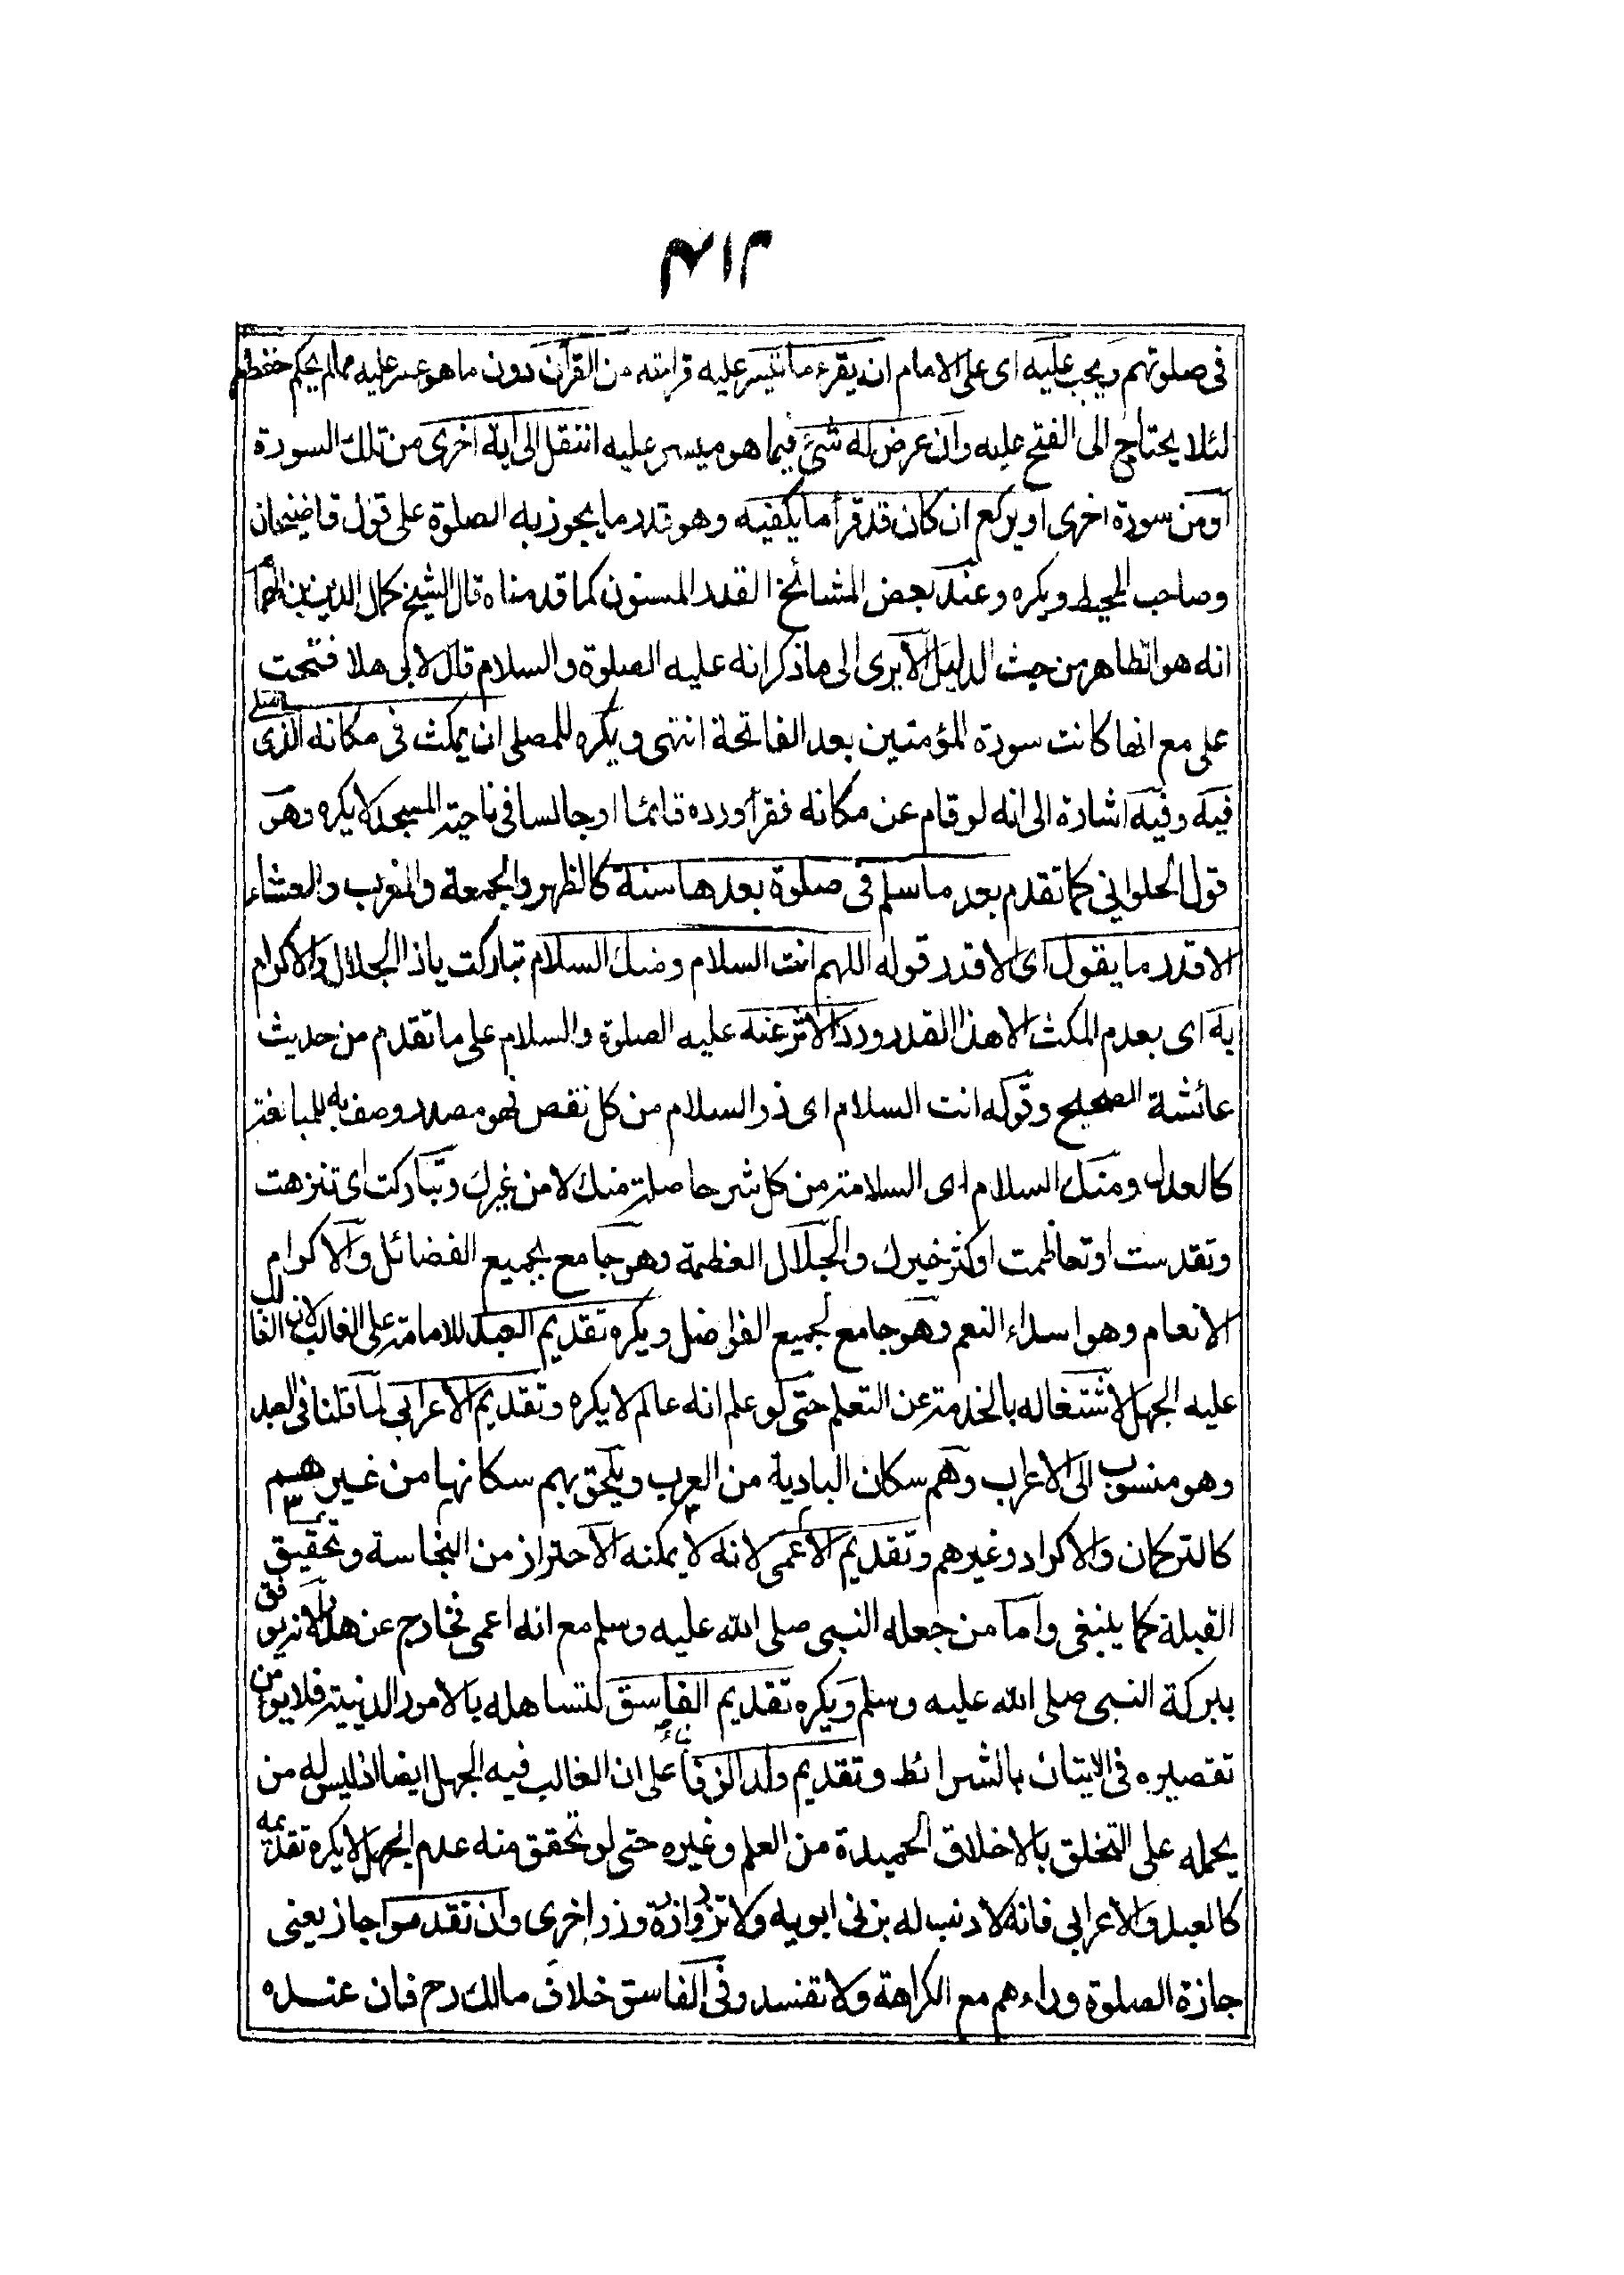 ٣١٣
فى صلوتهم ويجب عليه اى على الامام ان يقرء ما تيسر عليه قرائته من القرآن دون ما هو عسر عليه مما لم يحكم حفظه
لئلا يحتاج الى الفتح عليه وان عرض له شئ فيما هو ميسر عليه انتقل الى اية اخرى من تلك السورة
أو من سورة اخرى او يركع ان كان قد قرأ ما يكفيه وهو قدر ما يجوز به الصلوة على قول قاضيخان
وصاحب المحيط ويكره وعند بعض المشائخ القدر المسنون كما قدمناه قال الشيخ كمال الدين بن الهمام
انه هو الظاهر من حيث الدليل الا يرى الى ما ذكر انه عليه الصلوة والسلام قال لابى هلا فتحت
على مع انها كانت سورة المؤمنين بعد الفاتحة انتهى ويكره للمصلى ان يمكث فى مكانه الذى صلى
فيه وفيه اشارة الى انه لو قام عن مكانه فقرأ ورده قائما او جالسا فى ناحية المسجد لا يكره وهو
قول الحلوانى كما تقدم بعد ما سلم فى صلوة بعدها سنة كالظهر والجمعة والمغرب والعشاء
الا قدر ما يقول اى الا قدر قوله اللهم انت السلام ومنك السلام تباركت ياذا الجلال والاكرام
به اى بعدم المكث الا هذا القدر ورد الاثر عنه عليه الصلوة والسلام على ما تقدم من حديث
عائشة الصحيح وقوله انت السلام اى ذو السلام من كل نقص فهو مصدر وصف به للمبالغة
كالعدل ومنك السلام اى السلامة من كل شر حاصلة منك لا من غيرك وتباركت اى تنزهت
وتقدست او تعاظمت او كثر خيرك والجلال العظمة وهو جامع لجميع الفضائل والاكرام
الانعام وهو اسداء النعم وهو جامع لجميع الفواضل ويكره تقديم العبد للامامة على الغالب لان الغالب
عليه الجهل لاشتغاله بالخدمة عن التعلم حتى لو علم انه عالم لا يكره وتقديم الاعرابى لما قلنا فى العبد
وهو منسوب الى الاعراب وهم سكان البادية من العرب ويلحق بهم سكانها من غيرهم
كالتركمان والاكراد وغيرهم وتقديم الاعمى لانه لا يمكنه الاحتراز من النجاسة وتحقيق
القبلة كما ينبغى واما من جعله النبى صلى الله عليه وسلم مع انه اعمى فخارج عن هذا لانه يوفق
ببركة النبى صلى الله عليه وسلم ويكره تقديم الفاسق لتساهله بالامور الدينية فلا يؤمن
تقصيره فى الاتيان بالشرائط وتقديم ولد الزنا بناء على ان الغالب فيه الجهل ايضا اذ ليس له من
يحمله على التخلق بالاخلاق الحميدة من العلم وغيره حتى لو تحقق منه عدم الجهل لا يكره تقديمه
كالعبد والاعرابى فانه لا ذنب له بزنى ابويه ولا تزر وازرة وزر اخرى وان تقدموا جاز يعنى
جازة الصلوة وراءهم مع الكراهة ولا تفسد وفى الفاسق خلاف مالك رح فان عنده